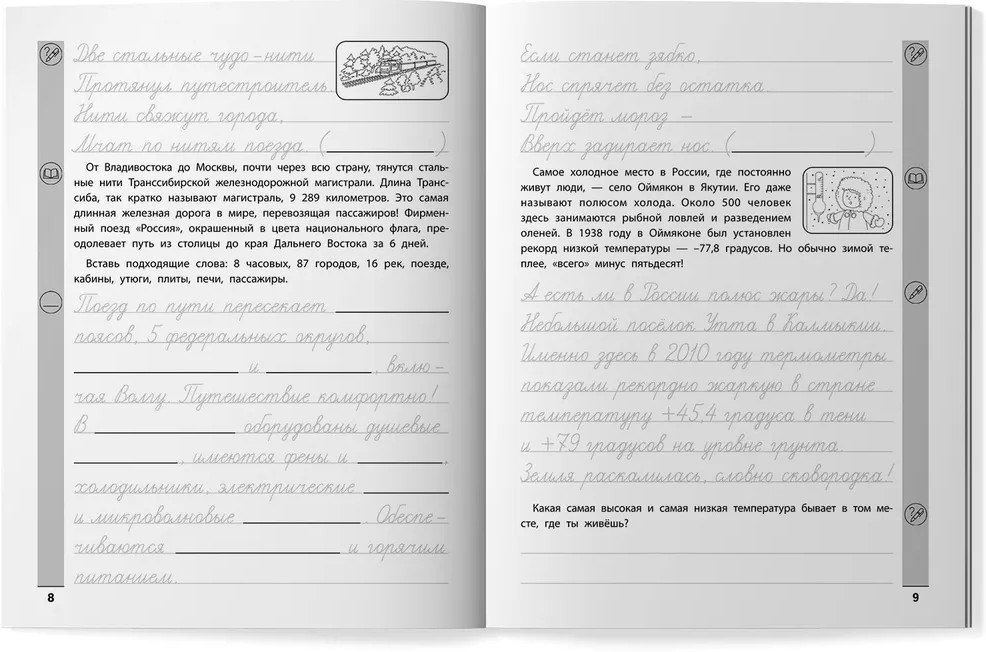 Две стальные чудо-нити
Протянул путестроитель.
Нити свяжут города,
Мчат по нитям поезда. (
)
От Владивостока до Москвы, почти через всю страну, тянутся сталь-
ные нити Транссибирской железнодорожной магистрали. Длина Транс-
сиба, так кратко называют магистраль, 9 289 километров. Это самая
длинная железная дорога в мире, перевозящая пассажиров! Фирмен-
ный поезд «Россия», окрашенный в цвета национального флага, пре-
одолевает путь из столицы до края Дальнего Востока за 6 дней.
Вставь подходящие слова: 8 часовых, 87 городов, 16 рек, поезде,
кабины, утюги, плиты, печи, пассажиры.
Поезд по пути пересекает
поясов, 5 федеральных округов,
и , вклю-
чая Волгу. Путешествие комфортно!
В оборудованы душевые
, имеются фены и ,
холодильники, электрические
и микроволновые . Обеспе-
чиваются и горячим
питанием.
8
Если станет зябко,
Нос спрячет без остатка.
Пройдёт мороз –
Вверх задирает нос. ( )
Самое холодное место в России, где постоянно
живут люди, — село Оймякон в Якутии. Его даже
называют полюсом холода. Около 500 человек
здесь занимаются рыбной ловлей и разведением
оленей. В 1938 году в Оймяконе был установлен
рекорд низкой температуры — –77,8 градусов. Но обычно зимой те-
плее, «всего» минус пятьдесят!
А есть ли в России полюс жары? Да!
Небольшой посёлок Утта в Калмыкии.
Именно здесь в 2010 году термометры
показали рекордно жаркую в стране
температуру +45,4 градуса в тени
и +79 градусов на уровне грунта.
Земля раскалилась, словно сковородка!
Какая самая высокая и самая низкая температура бывает в том ме-
сте, где ты живёшь?
9